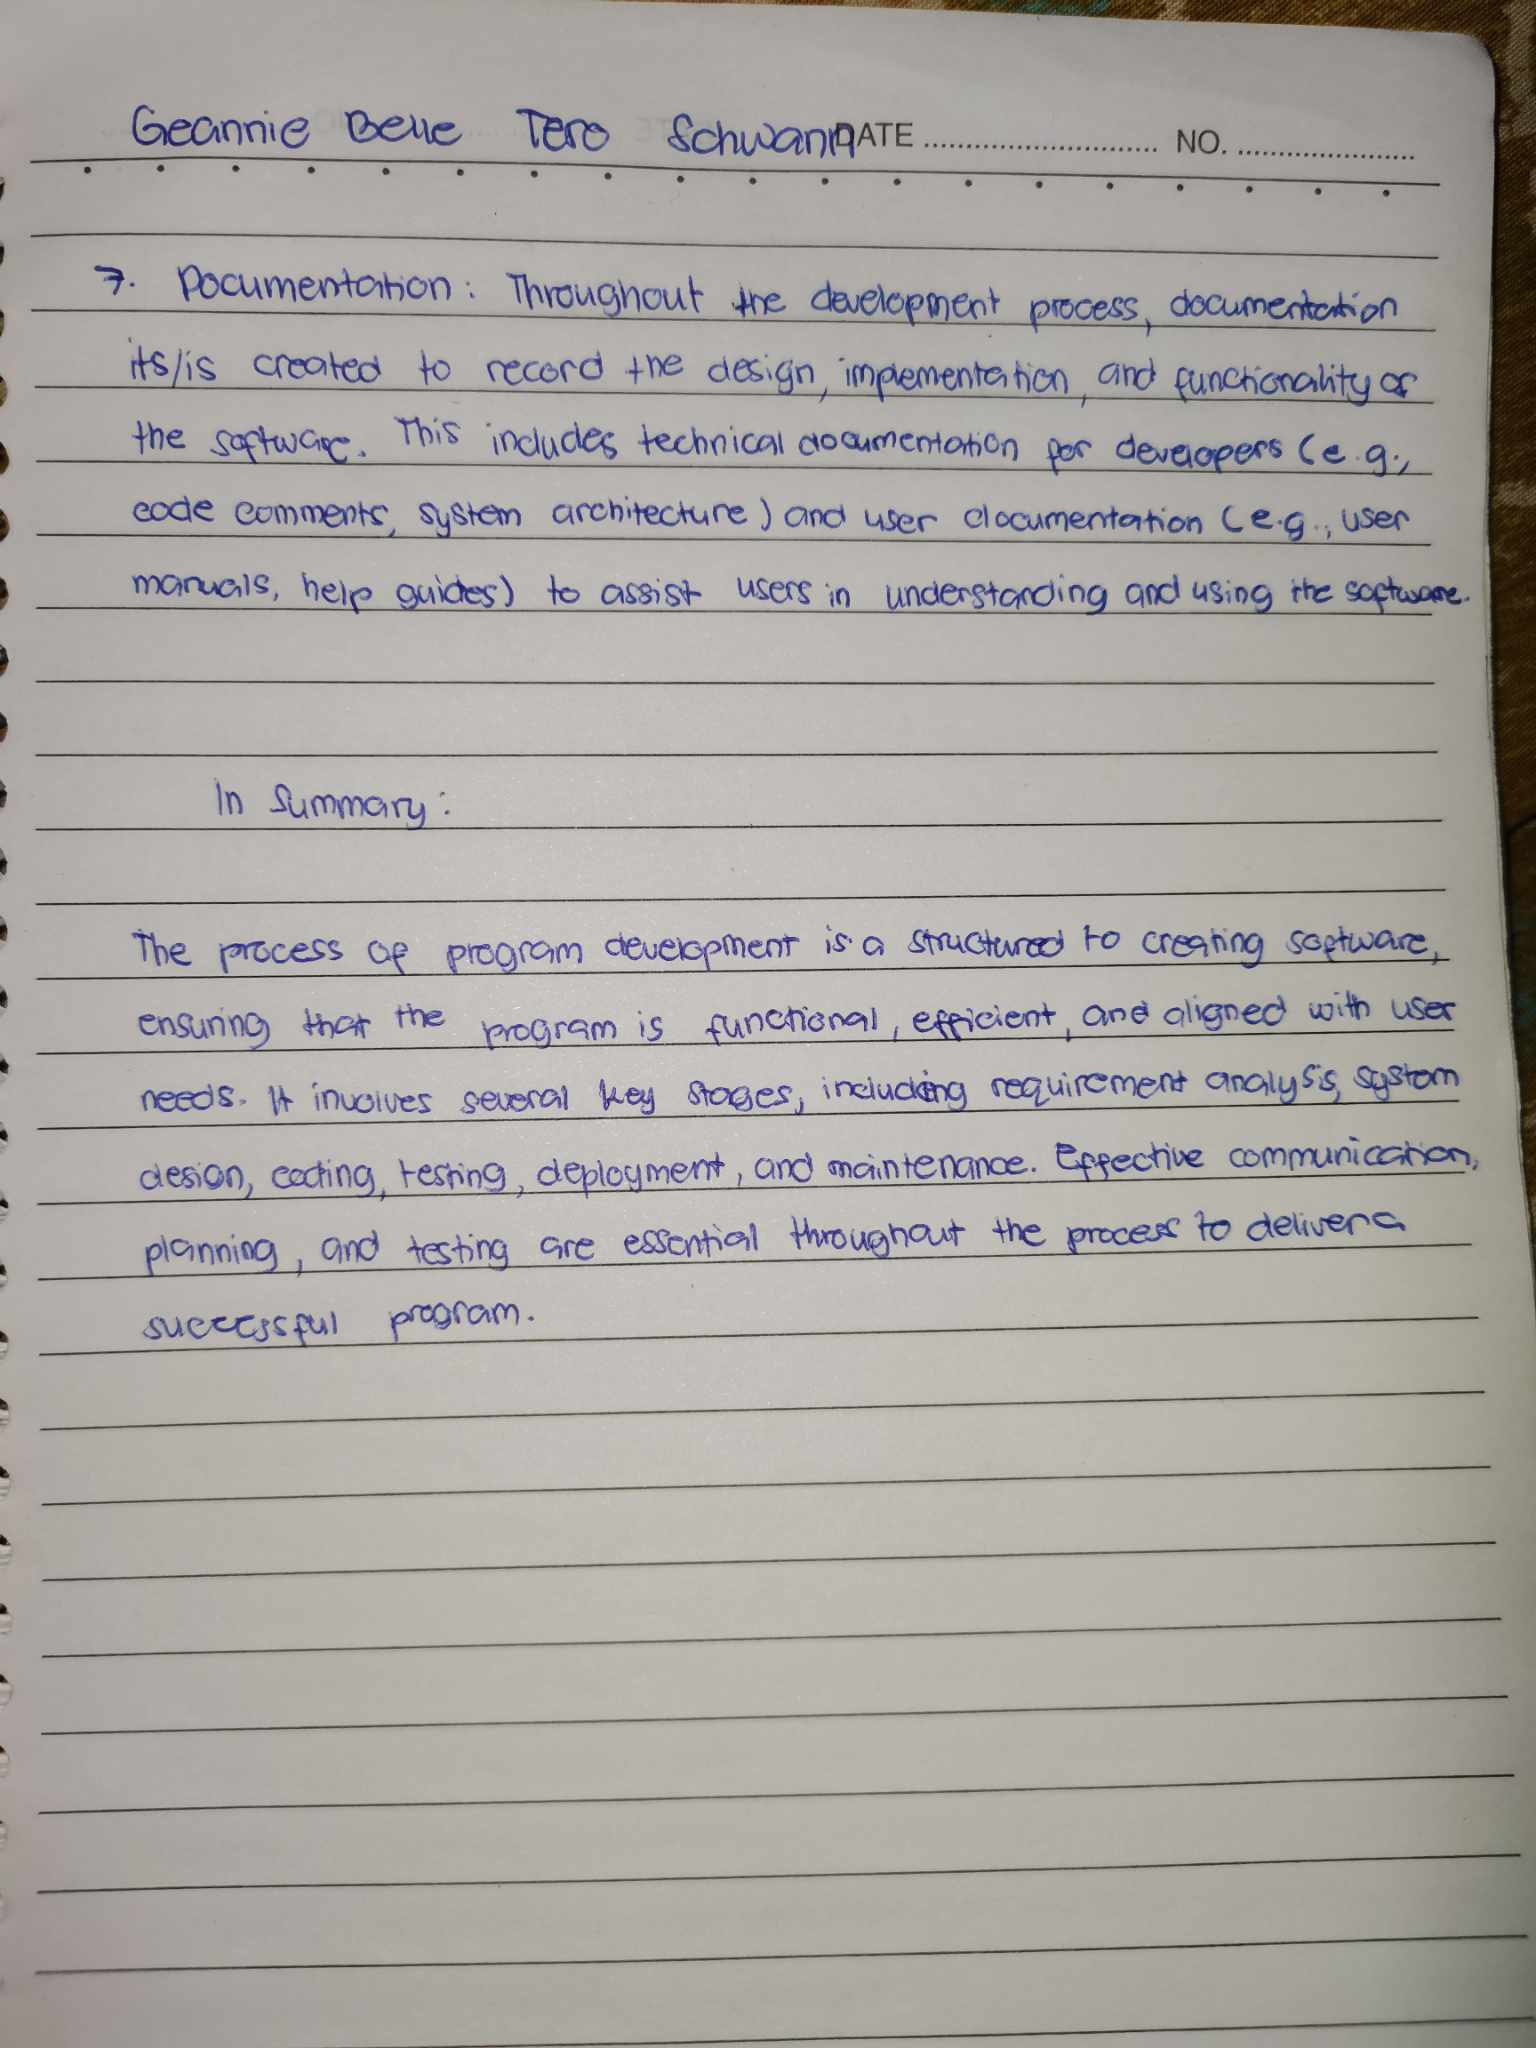 Geannie Belle Tero Schwann DATE ........................... NO. ......................
7. Documentation: Throughout the development process, documentation
its/is created to record the design, implementation, and functionality of
the software. This includes technical documentation for developers (e.g.,
code comments, system architecture) and user documentation (e.g., user
manuals, help guides) to assist users in understanding and using the software.
In Summary:
The process of program development is a structured to creating software,
ensuring that the program is functional, efficient, and aligned with user
needs. It involves several key stages, including requirement analysis, system
design, coding, testing, deployment, and maintenance. Effective communication,
planning, and testing are essential throughout the process to deliver a
successful program.